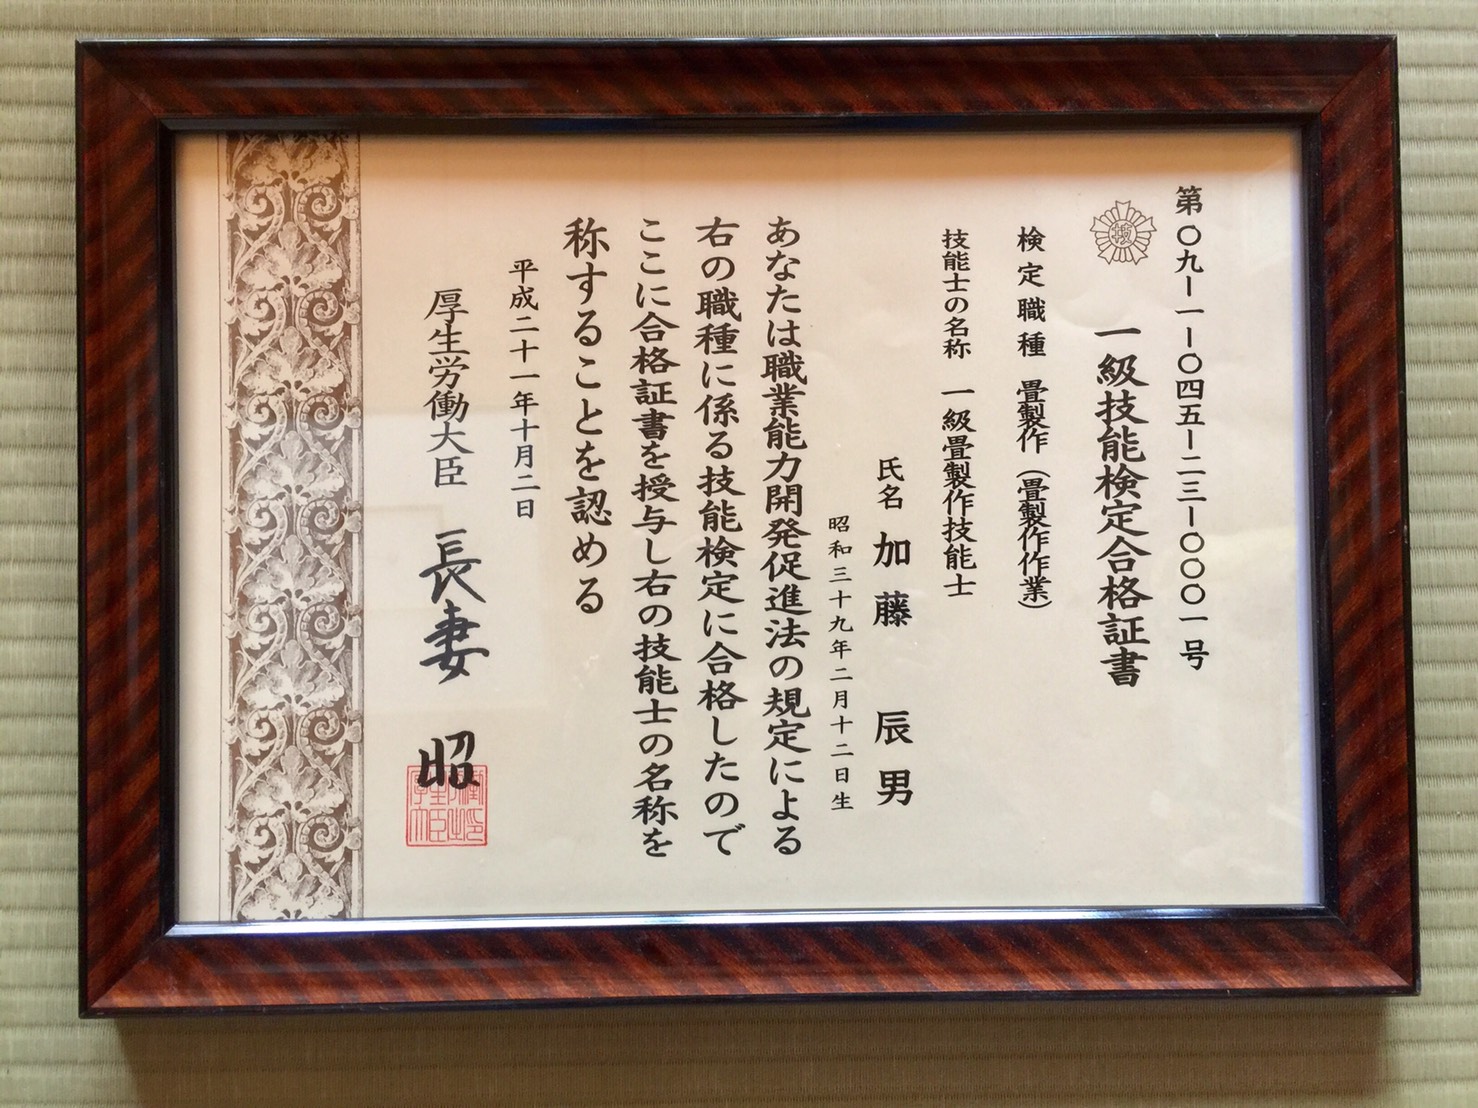 第〇九ー一ー〇四五ー二三ー〇〇〇一号
技
一級技能検定合格証書
検定職種 畳製作（畳製作作業）
技能士の名称 一級畳製作技能士
氏名 加藤 辰男
昭和三十九年二月十二日生
あなたは職業能力開発促進法の規定による
右の職種に係る技能検定に合格したので
ここに合格証書を授与し右の技能士の名称を
称することを認める
平成二十一年十月二日
厚生労働大臣 長妻 昭